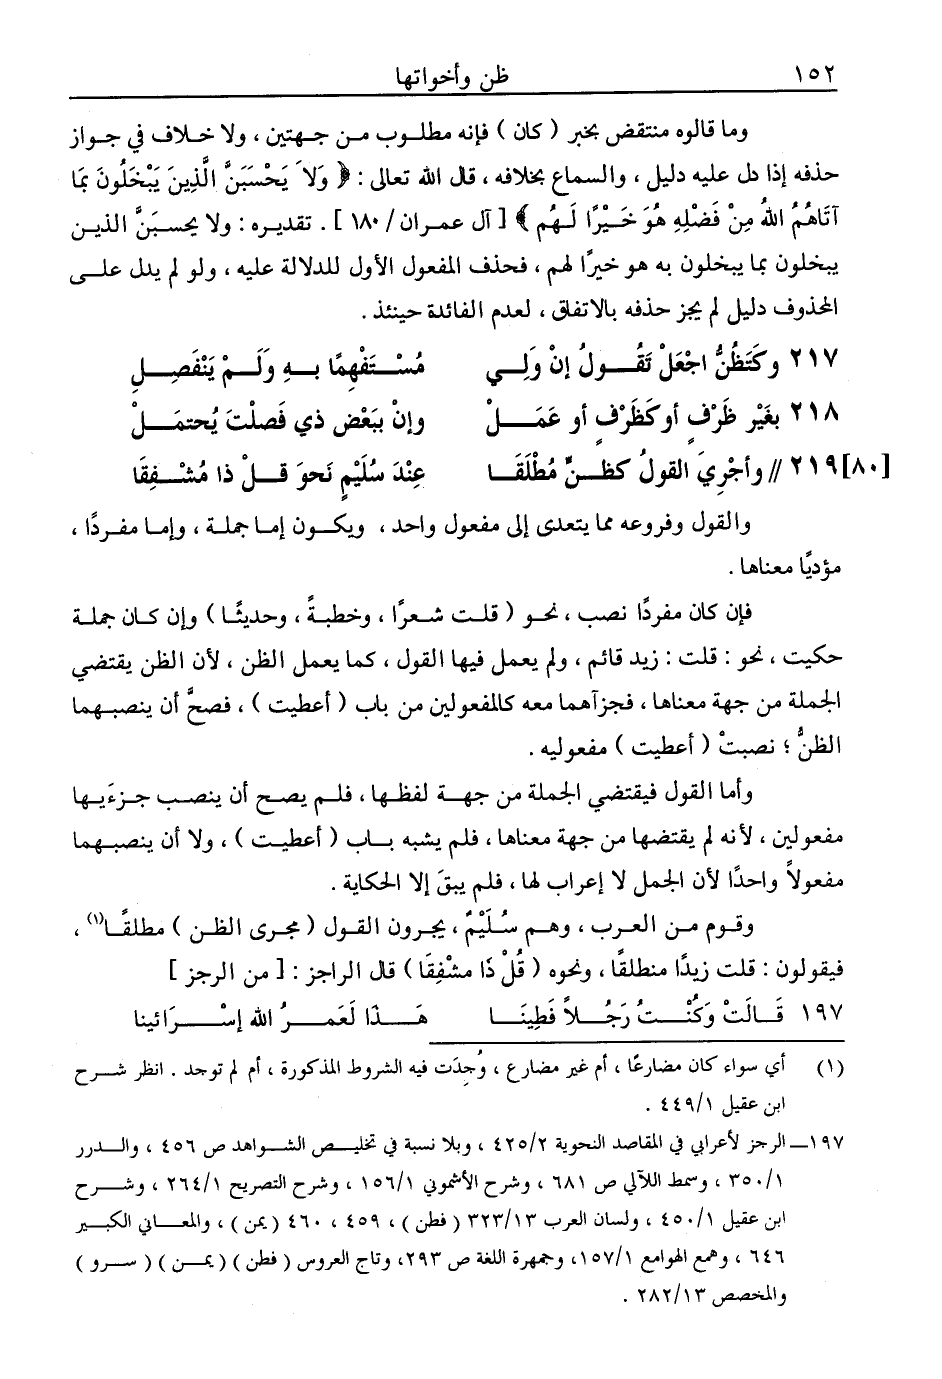 ١٥٢ ظن وأخواتها
وما قالوه منتقض بخبر ( كان ) فإنه مطلوب من جهتين ، ولا خلاف في جواز
حذفه إذا دل عليه دليل ، والسماع بخلافه ، قال الله تعالى : ﴿ وَلاَ يَحْسَبَنَّ الَّذِينَ يَبْخَلُونَ بِمَا
آتَاهُمُ اللهُ مِنْ فَضْلِهِ هُوَ خَيْرًا لَهُم ﴾ [ آل عمران / ١٨٠ ] . تقديره : ولا يحسبَنَّ الذين
يبخلون بما يبخلون به هو خيرًا لهم ، فحذف المفعول الأول للدلالة عليه ، ولو لم يدل على
المحذوف دليل لم يجز حذفه بالاتفاق ، لعدم الفائدة حينئذ .
٢١٧ وكَتَظُنُّ اجْعَلْ تَقُولُ إنْ وَلِي مُسْتَفْهِمًا بِهِ وَلَمْ يَنْفَصِلِ
٢١٨ بغَيْر ظَرْفٍ أو كَظَرْفٍ أو عَمَلْ وإنْ ببَعْض ذي فَصلْتَ يُحتمَلْ
[٨٠] ٢١٩ // وأجْرِيَ القولُ كظنٍّ مُطْلَقَا عِنْدَ سُلَيْمٍ نَحوَ قلْ ذا مُشْفِقَا
والقول وفروعه مما يتعدى إلى مفعول واحد ، ويكون إما جملة ، وإما مفردًا ،
مؤديًا معناها .
فإن كان مفردًا نصب ، نحو ( قلت شعرًا ، وخطبةً ، وحديثًا ) وإن كان جملة
حكيت ، نحو : قلت : زيد قائم ، ولم يعمل فيها القول ، كما يعمل الظن ، لأن الظن يقتضي
الجملة من جهة معناها ، فجزآهما معه كالمفعولين من باب ( أعطيت ) ، فصحَّ أن ينصبهما
الظنُّ ؛ نصبتْ ( أعطيت ) مفعوليه .
وأما القول فيقتضي الجملة من جهة لفظها ، فلم يصح أن ينصب جزءَيها
مفعولين ، لأنه لم يقتضها من جهة معناها ، فلم يشبه باب ( أعطيت ) ، ولا أن ينصبهما
مفعولاً واحدًا لأن الجمل لا إعراب لها ، فلم يبقَ إلا الحكاية .
وقوم من العرب ، وهم سُلَيْمٌ ، يجرون القول ( مجرى الظن ) مطلقًا(١) ،
فيقولون : قلت زيدًا منطلقًا ، ونحوه ( قُلْ ذَا مشْفِقَا ) قال الراجز : [ من الرجز ]
١٩٧ قَالَتْ وَكُنْتُ رَجُلاً فَطِينَا هَذَا لَعَمرُ الله إسْرَائينا
(١) أي سواء كان مضارعًا ، أم غير مضارع ، وُجدَت فيه الشروط المذكورة ، أم لم توجد . انظر شرح
ابن عقيل ٤٤٩/١ .
١٩٧ــ الرجز لأعرابي في المقاصد النحوية ٤٢٥/٢ ، وبلا نسبة في تخليص الشواهد ص ٤٥٦ ، والدرر
٣٥٠/١ ، وسمط اللآلي ص ٦٨١ ، وشرح الأشموني ١٥٦/١ ، وشرح التصريح ٢٦٤/١ ، وشرح
ابن عقيل ٤٥٠/١ ، ولسان العرب ٣٢٣/١٣ ( فطن ) ، ٤٥٩ ، ٤٦٠ (يمن) ، والمعاني الكبير
٦٤٦ ، وهمع الهوامع ١٥٧/١، وجمهرة اللغة ص ٢٩٣، وتاج العروس ( فطن ) ( يمن ) ( سرو )
والمخصص ٢٨٢/١٣ .